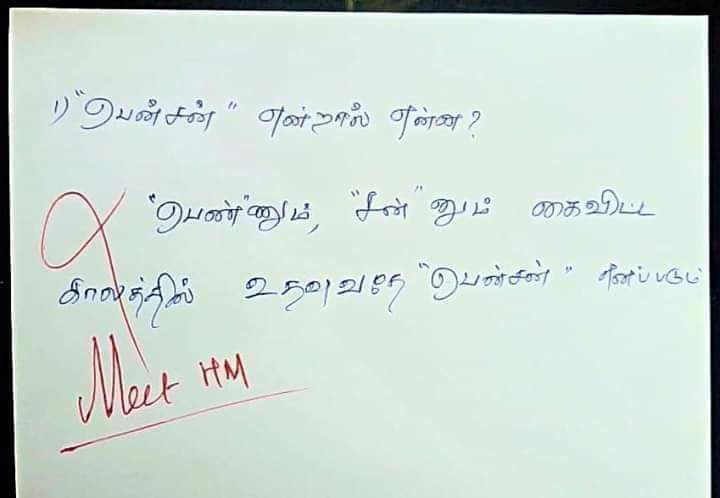 1) "பென்சன்" என்றால் என்ன?
"பெண்"ணும், "சன்"னும் கைவிட்ட
காலத்தில் உதவுவதே "பென்சன்" எனப்படும்
Meet HM